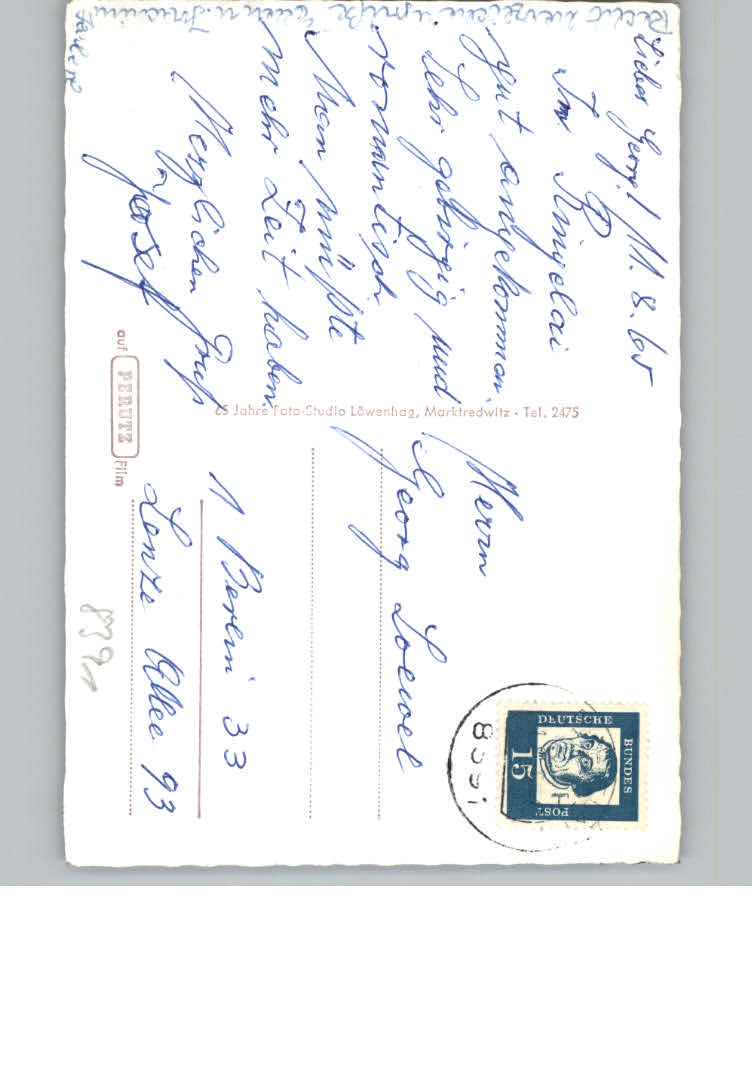 Lieber Georg! 11.8.65
Im Ringelai
gut angekommen.
Sehr gebirgig und
romantisch
Man müßte
mehr Zeit haben.
Herzlichen Gruß
Josef
Recht herzliche Grüße
65 Jahre Foto-Studio Löwenhag, Marktredwitz · Tel. 2475
auf PERUTZ Film
Herrn
Georg Loewel
1 Berlin 33
Lenze Allee 93
8391
DEUTSCHE
BUNDES
POST
15
Luther
8391